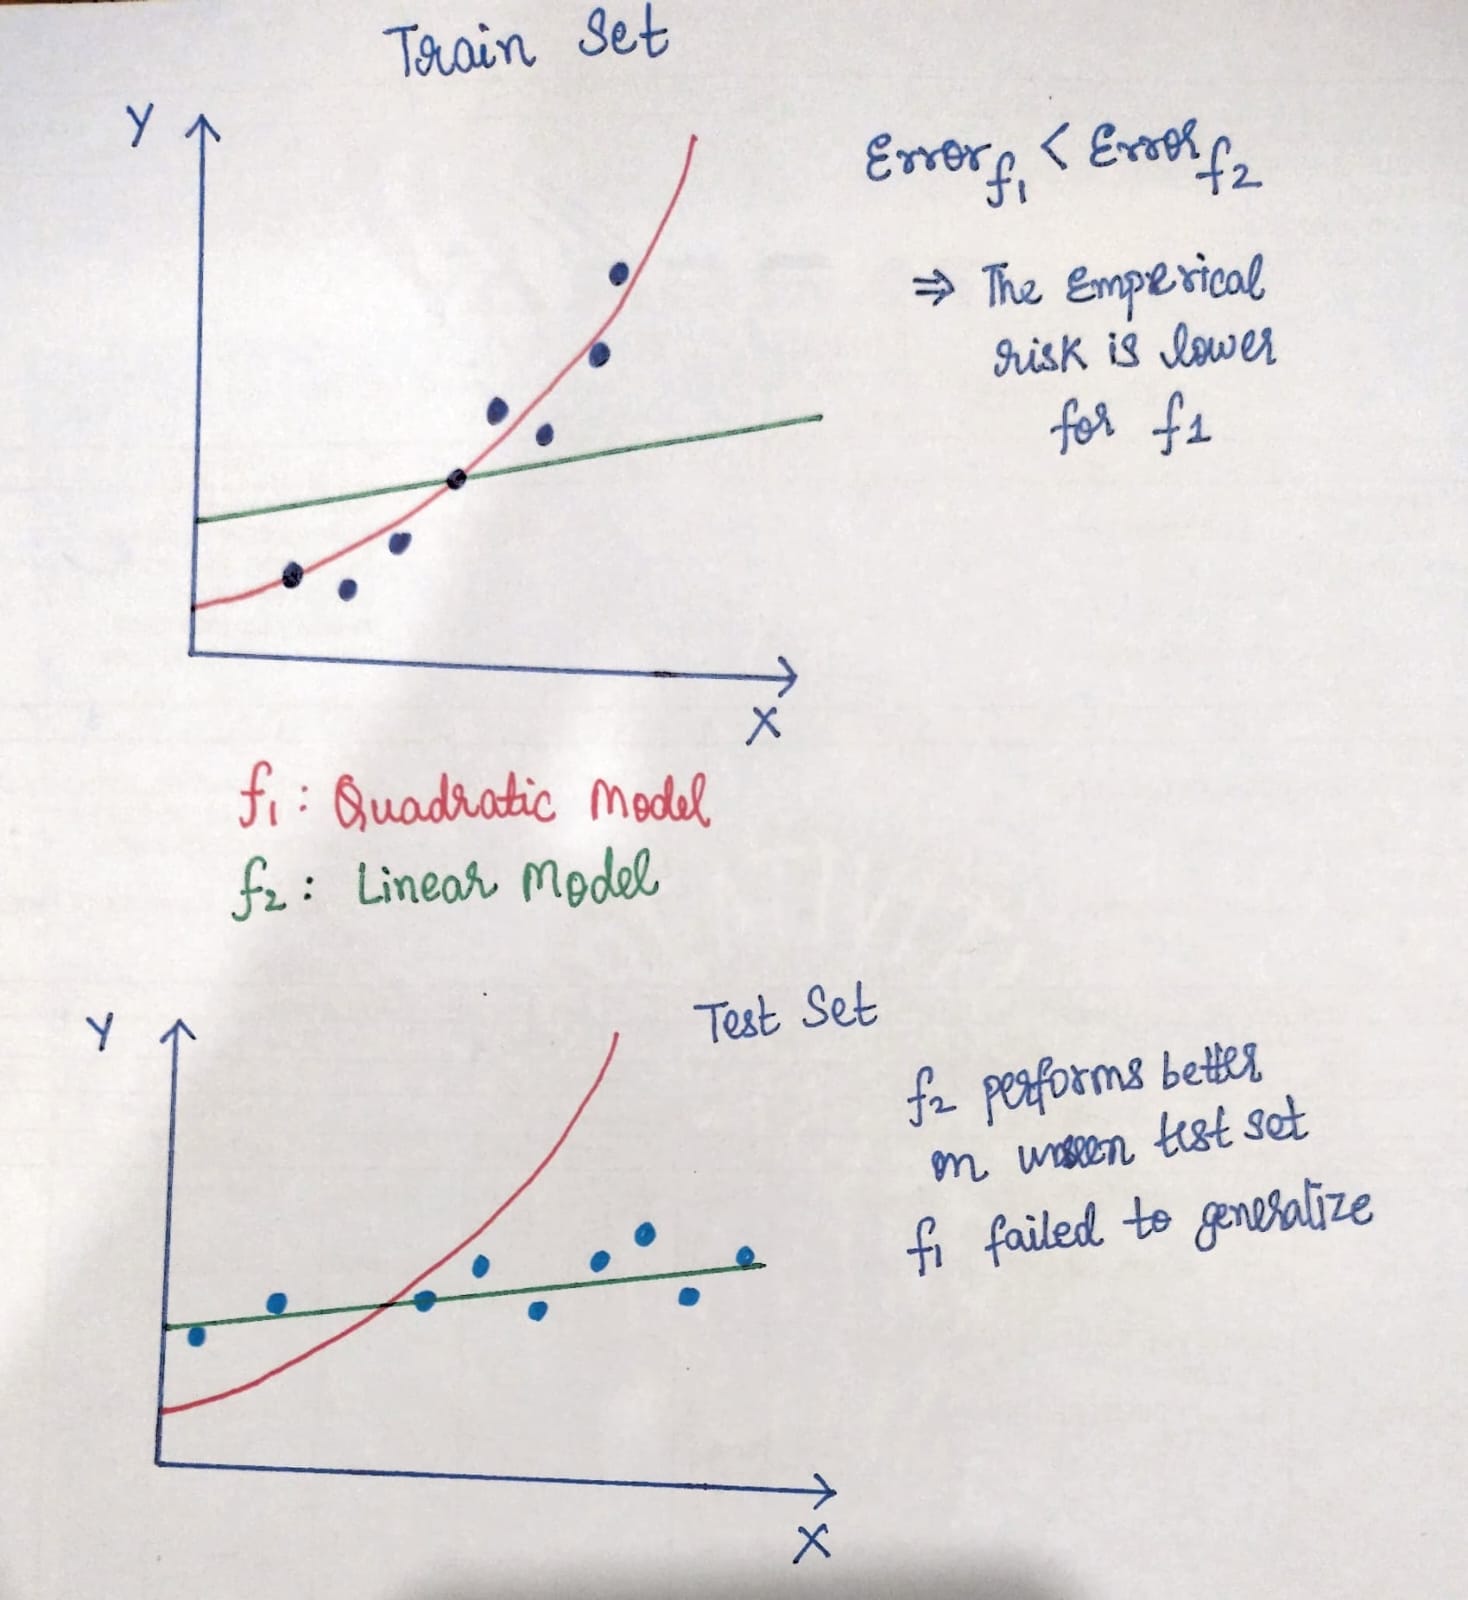 Train Set
Y
Error f1 < Error f2
⇒ The Emperical
risk is lower
for f1
X
f1 : Quadratic Model
f2 : Linear Model
Test Set
Y
f2 performs better
on unseen test set
f1 failed to generalize
X